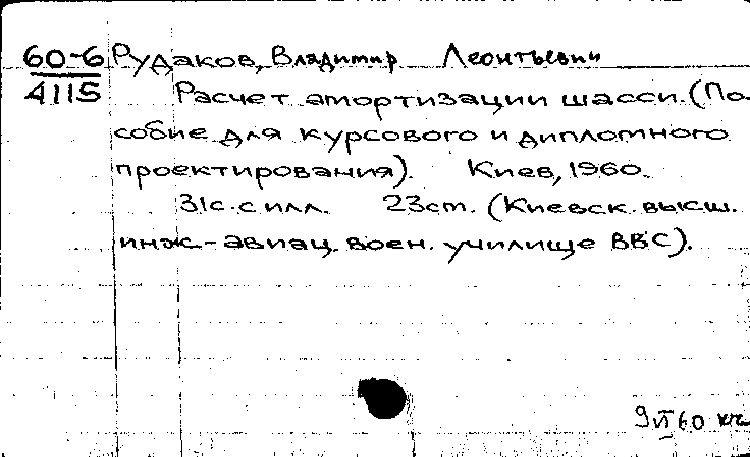 60-6 Рудаков, Владимир Леонтьевич
4115 Расчет амортизации шасси. (По-
собие для курсового и дипломного
проектирования). Киев, 1960.
31с. с илл. 23см. (Киевск. высш.
инж-авиац. воен. училище ВВС).
9 VI 60